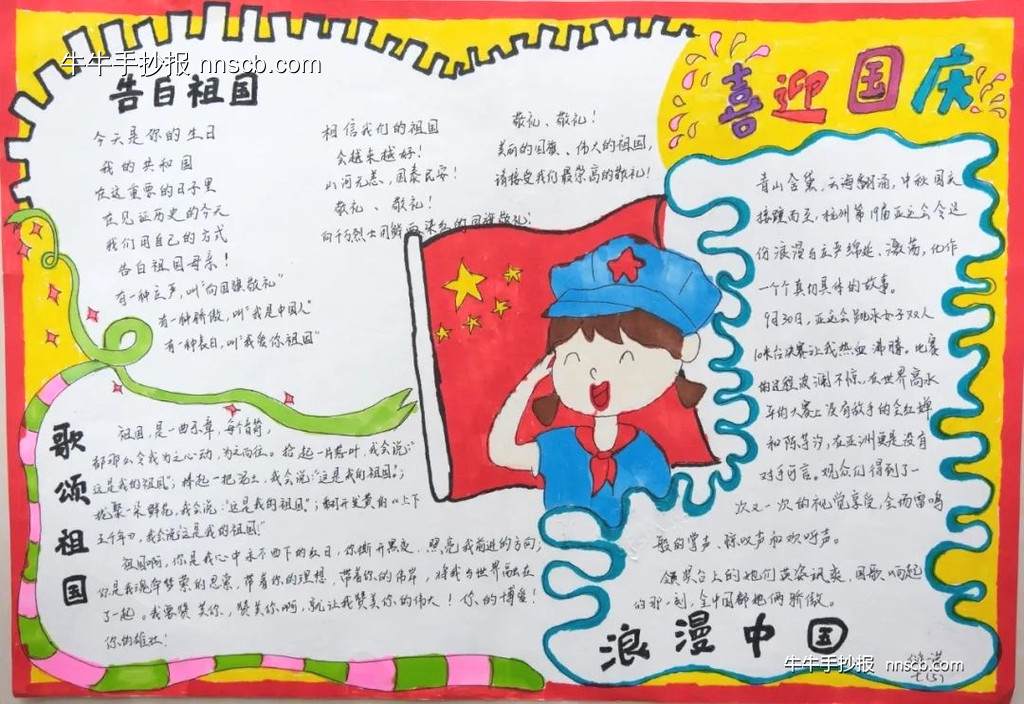 牛牛手抄报 nnscb.com
告白祖国
今天是你的生日
我的共和国
在这重要的日子里
在见证历史的今天
我们用自己的方式
告白祖国母亲！
有一种立声,叫"向国旗敬礼"
有一种骄傲,叫"我是中国人"
有一种表白,叫"我爱你祖国"
相信我们的祖国
会越来越好！
山河无恙,国泰民安！
敬礼、敬礼！
向千万烈士用鲜血染红的国旗敬礼！
敬礼、敬礼！
美丽的国旗、伟大的祖国,
请接受我们最崇高的敬礼！
喜迎国庆
青山含黛,云海翻涌,中秋国庆
接踵而至,杭州第19届亚运会令这
份浪漫与立声绵延、激荡,化作
一个个真切具体的故事。
9月30日,亚运会跳水女子双人
10米台决赛让我热血沸腾。比赛
的过程波澜不惊,在世界高水
平的大赛上没有敌手的全红婵
和陈芋汐,在亚洲更是没有
对手可言。观众们得到了一
次又一次的视觉享受,全场雷鸣
般的掌声、惊叹声和欢呼声。
领奖台上的她们英姿飒爽,国歌响起
的那一刻,全中国都她俩骄傲。
浪漫中国
歌颂祖国
祖国,是一曲乐章,每个音符,
都那么令我为之心动,为之向往。拾起一片落叶,我会说:"
这是我的祖国";捧起一把泥土,我会说:"这是我的祖国";
我聚一朵鲜花,我会说:"这是我的祖国";翻开发黄的以上下
五千年,我会说"这是我的祖国"
祖国啊,你是我心中永不西下的红日,你撕开黑夜,照亮我前进的方向;
你是我魂牵梦萦的思索,带着你的理想,带着你的伟岸,将我与世界融在
了一起。我要赞美你,赞美你啊,就让我赞美你的伟大！你的博爱！
你的雄壮！
牛牛手抄报 nnscb.com
七(5)